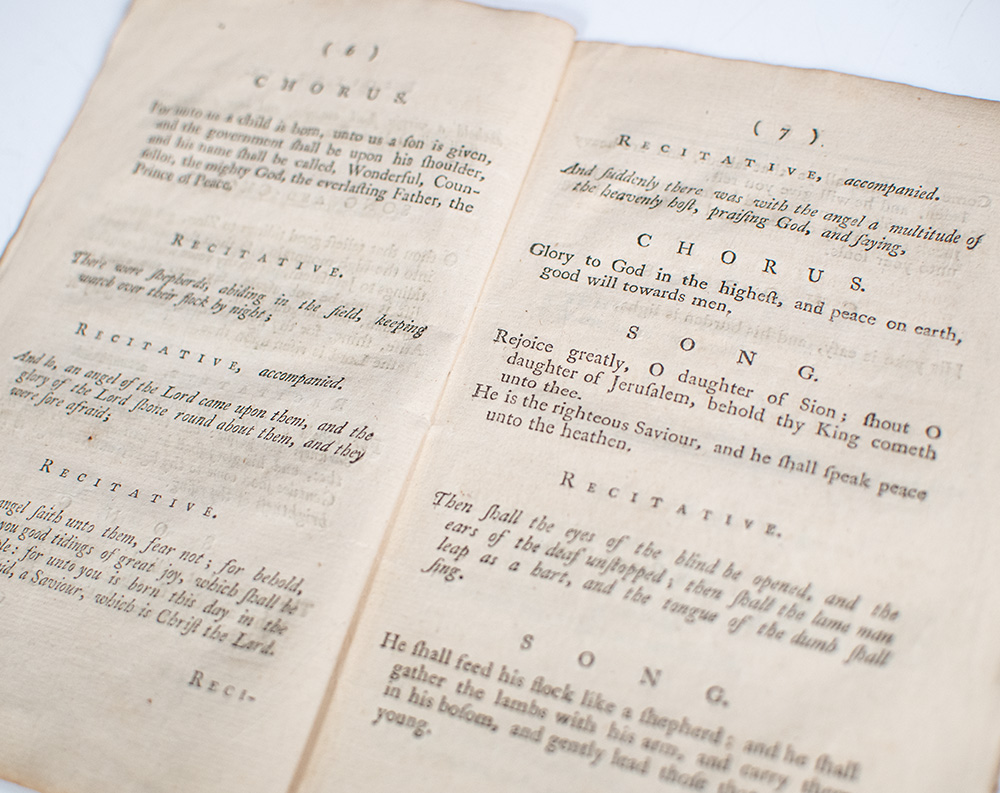 ( 6 )
CHORUS.
For unto us a child is born, unto us a ſon is given,
and the government ſhall be upon his ſhoulder,
and his name ſhall be called, Wonderful, Coun-
ſellor, the mighty God, the everlaſting Father, the
Prince of Peace.
RECITATIVE.
There were ſhepherds, abiding in the field, keeping
watch over their flock by night;
RECITATIVE, accompanied.
And lo, an angel of the Lord came upon them, and the
glory of the Lord ſhone round about them, and they
were ſore afraid;
RECITATIVE.
angel ſaith unto them, fear not; for behold,
you good tidings of great joy, which ſhall be
for unto you is born this day in the
a Saviour, which is Chriſt the Lord.
RECI-
( 7 )
RECITATIVE, accompanied.
And ſuddenly there was with the angel a multitude of
the heavenly hoſt, praiſing God, and ſaying,
CHORUS.
Glory to God in the higheſt, and peace on earth,
good will towards men.
SONG.
Rejoice greatly, O daughter of Sion; ſhout O
daughter of Jeruſalem, behold thy King cometh
unto thee.
He is the righteous Saviour, and he ſhall ſpeak peace
unto the heathen.
RECITATIVE.
Then ſhall the eyes of the blind be opened, and the
ears of the deaf unſtopped; then ſhall the lame man
leap as a hart, and the tongue of the dumb ſhall
ſing.
SONG.
He ſhall feed his flock like a ſhepherd; and he ſhall
gather the lambs with his arm, and carry them
in his boſom, and gently lead thoſe
young.